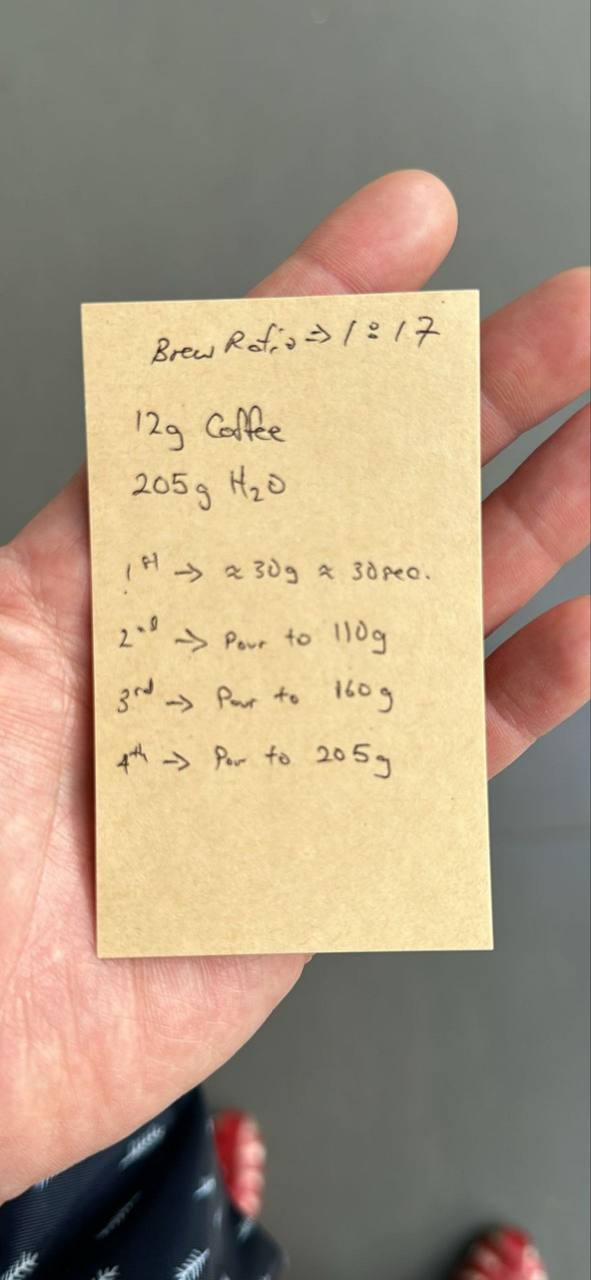 Brew Ratio ⇒ 1:17
12g Coffee
205g H₂O
1st → ≈ 30g ≈ 30sec.
2nd → Pour to 110g
3rd → Pour to 160g
4th → Pour to 205g